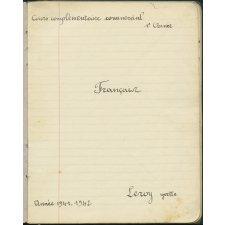 Cours complémentaire commercial
1e Classe
Français
Leroy Yvette
Année 1941-1942